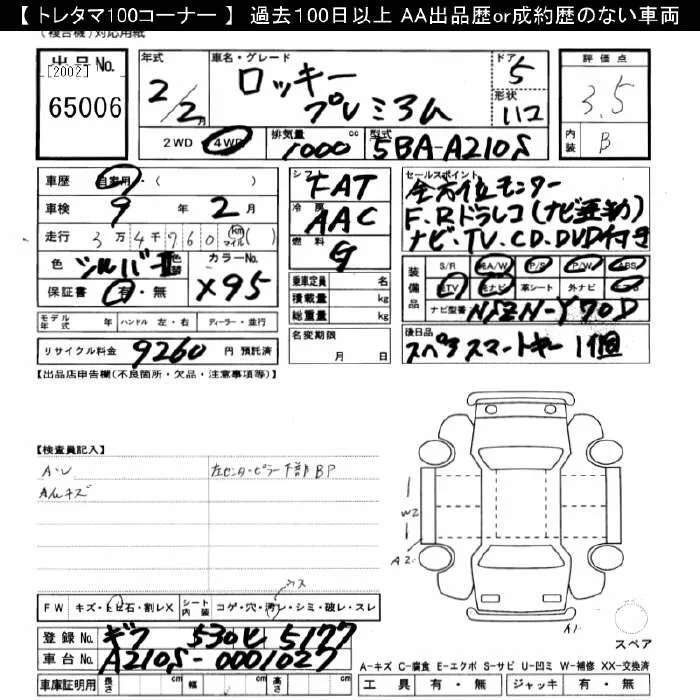 【 トレタマ100コーナー 】 過去100日以上 AA出品歴or成約歴のない車両
(複合機)対応用紙
出品No. [2002] 65006
年式 2/2月
車名・グレード ロッキー プレミアム
ドア 5
形状 ハコ
評価点 3.5
内装 B
2WD 4WD 排気量 1000 cc 型式 5BA-A210S
車歴 自家用・( )
車検 9 年 2 月
走行 3万4千960 km マイル( )
色 シルバーⅡ 色替 カラーNo. X95
保証書 有・無
モデル年式 年 ハンドル 左・右 ディーラー・並行
リサイクル料金 9260 円 預託済
シフト FAT
冷房 AAC
燃料 G
乗車定員 名
積載量 kg
総重量 kg
名変期限 月 日
セールスポイント
全方位モニター
F.Rドラレコ(ナビ連動)
ナビ・TV.CD.DVD付き
装備品 S/R 純A/W P/S P/W ABS
純TV 純ナビ 革シート 外ナビ エアB
ナビ型番 NSZN-Y70D
後日品
スペアスマートキー 1個
【出品店申告欄(不良箇所・欠品・注意事項等)】
【検査員記入】
A・U
Aルキズ
左センターピラー下部BP
W2
A2
A1
スペア
FW キズ・ヒビ石・割レX シート内装 コゲ・穴・汚レ・シミ・破レ・スレ
ウス
登録No. ギフ 530 ヒ 5177
車台No. A210S-0001027
A-キズ C-腐食 E-エクボ S-サビ U-凹ミ W-補修 XX-交換済
車庫証明用 長さ cm 幅 cm 高さ cm
工具 有・無 ジャッキ 有・無